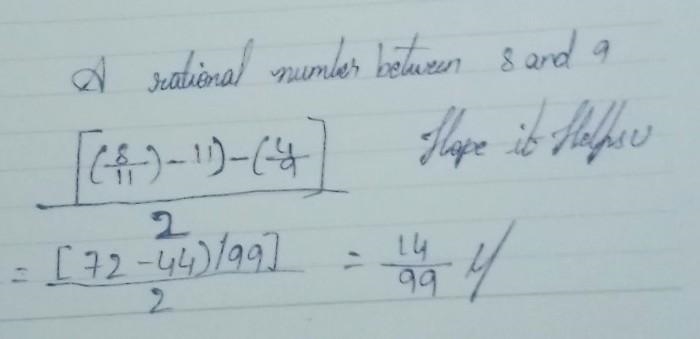 A rational number between 8 and 9
[(8/11) - 11) - (4/9] Hope it Helps u
2
= [72 - 44)/99] = 14/99
2